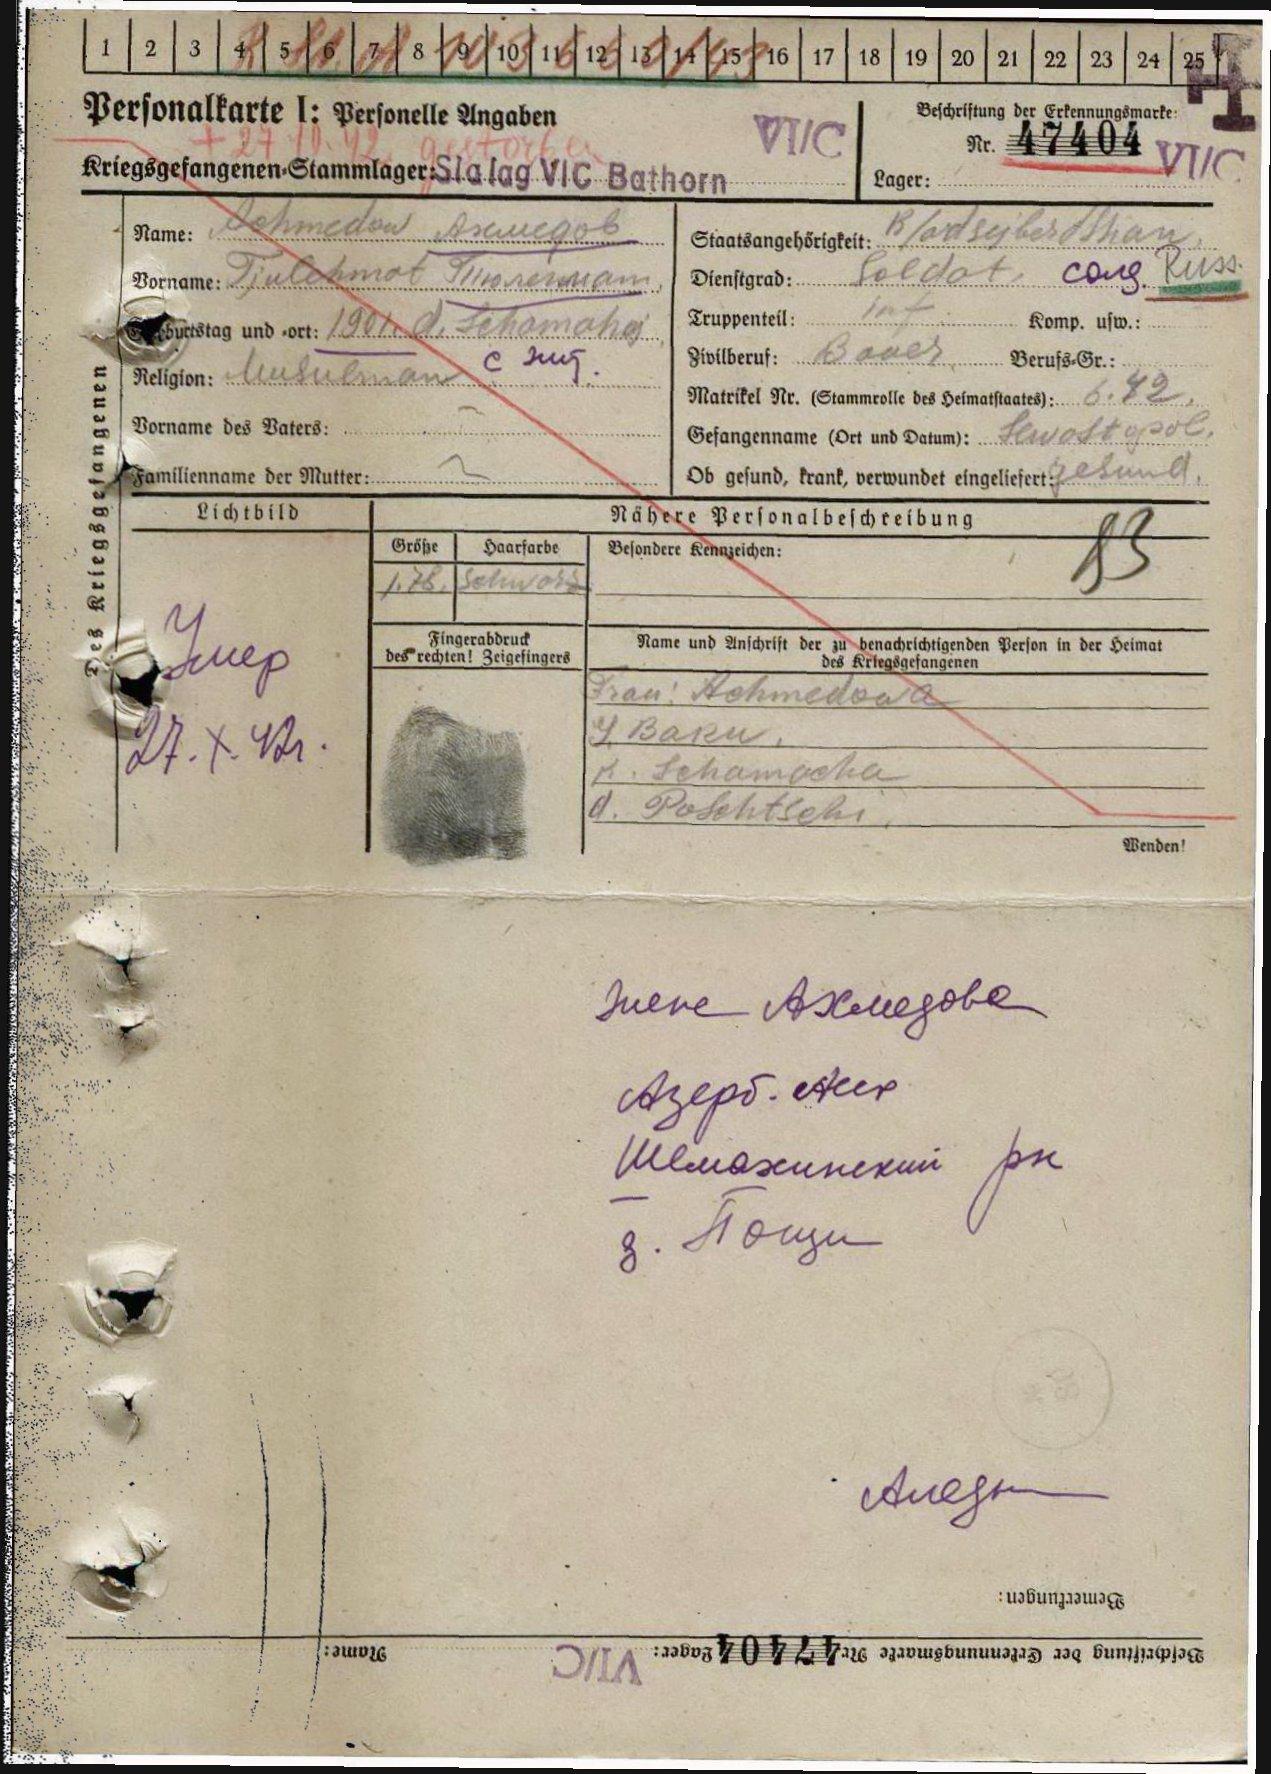 1 2 3 4 5 6 7 8 9 10 11 12 13 14 15 16 17 18 19 20 21 22 23 24 25
Personalkarte I: Personelle Angaben
+ 27.10.42 gestorben
Kriegsgefangenen-Stammlager: Stalag VIC Bathorn
VI/C
Beschriftung der Erkennungsmarke:
Nr. 47404
VI/C
Lager:
Des Kriegsgefangenen
Name: Achmedow Ахмедов
Vorname: Tjulehmat Тюлехмат
Geburtstag und -ort: 1901. d. Schamahaj
Religion: Musulman с жит.
Vorname des Vaters: —
Familienname der Mutter:
Staatsangehörigkeit:
Dienstgrad: Soldat, солд. Russ.
Truppenteil: Inf Komp. usw.:
Zivilberuf: Bauer Berufs-Gr.:
Matrikel Nr. (Stammrolle des Heimatstaates): 6.42.
Gefangenname (Ort und Datum): Sewostopol.
Ob gesund, krank, verwundet eingeliefert: gesund.
Lichtbild
Nähere Personalbeschreibung
Größe
Haarfarbe
Besondere Kennzeichen:
1.78. Schwarz
83
Fingerabdruck
des rechten! Zeigefingers
Name und Anschrift der zu benachrichtigenden Person in der Heimat
des Kriegsgefangenen
Frau: Achmedowa
G. Baku,
K. Schamacha
d. Poschtschi,
Умер
27.X.42г.
Wenden!
жене Ахмедова
Азерб.
Шемахинский рн
д. Пощи
Bemerkungen:
Beschriftung der Erkennungsmarke Nr. 47404 Lager: VI/C Name: